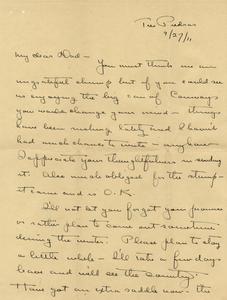 Tres Piedras
9/27/11
My dear Dad -
You must think me an
ungrateful chump but if you could see
us enjoying the big can of Conways
you would change your mind - things
have been rushing lately and I havn't
had much chance to write - anyhow
I appreciate your thoughtfulness in sending
it. Also much obliged for the stump-
it came and is O.K.
I'll not let you forget your promise
or rather plan to come out sometime
during the winter. Please plan to stay
a little while - I'll take a few days
leave and we'll see the Country.
Have got an extra saddle now - the